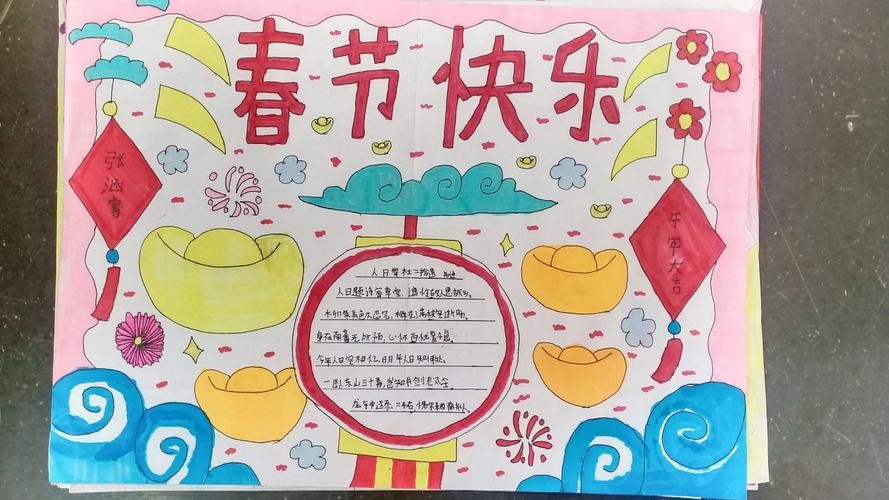 春节快乐
张涵睿
牛年大吉
人日寄杜二拾遗
人日题诗寄草堂，遥怜故人思故乡。
不忍见，梅花满枝空断肠。
身在南蕃无所预，心怀百忧复千虑。
今年人日空相忆，明年人日知何处。
一卧东山三十春，岂知书剑老风尘。
龙钟还忝二千石，愧尔东西南北人。